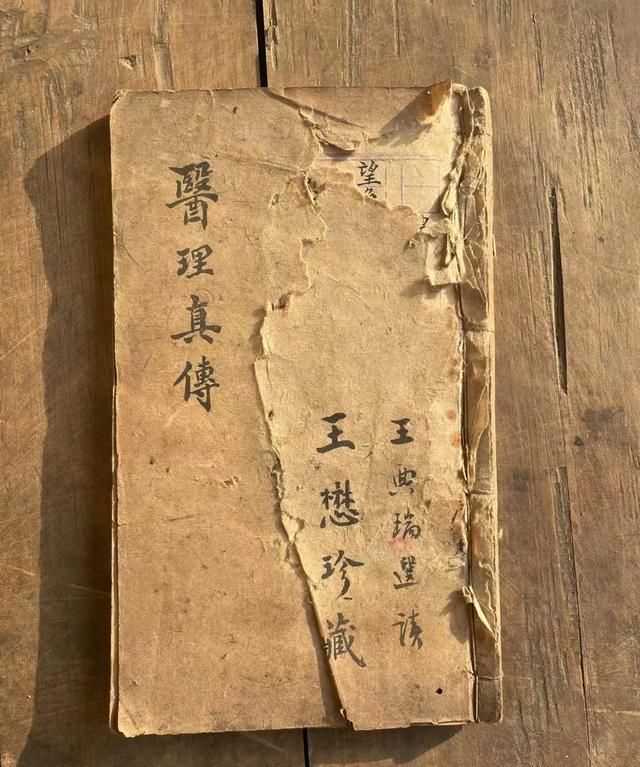 王典瑞選读
望
王懋珍藏
醫理真傳